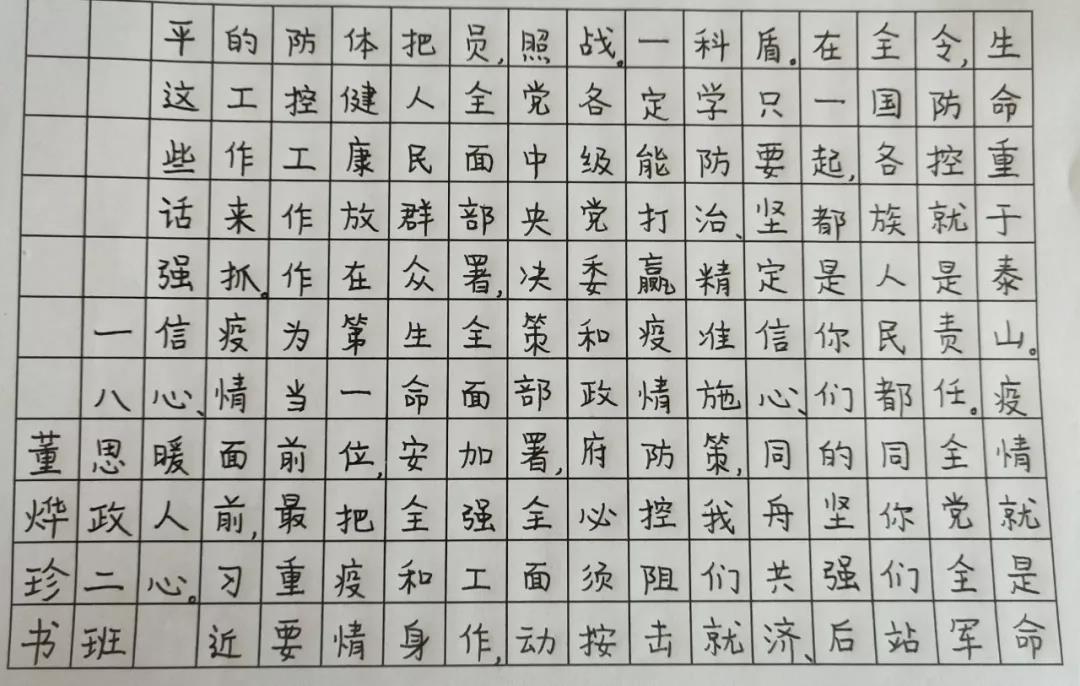 生命重于泰山。疫情就是命
令,防控就是责任。全党全军
全国各族人民都同你们站
在一起,都是你们的坚强后
盾。只要坚定信心、同舟共济、
科学防治、精准施策,我们就
一定能打赢疫情防控阻击
战。各级党委和政府必须按
照党中央决策部署,全面动
员,全面部署,全面加强工作,
把人民群众生命安全和身
体健康放在第一位,把疫情
防控工作作为当前最重要
的工作来抓。疫情面前,习近
平这些话强信心、暖人心。
一八思政二班
董烨珍书